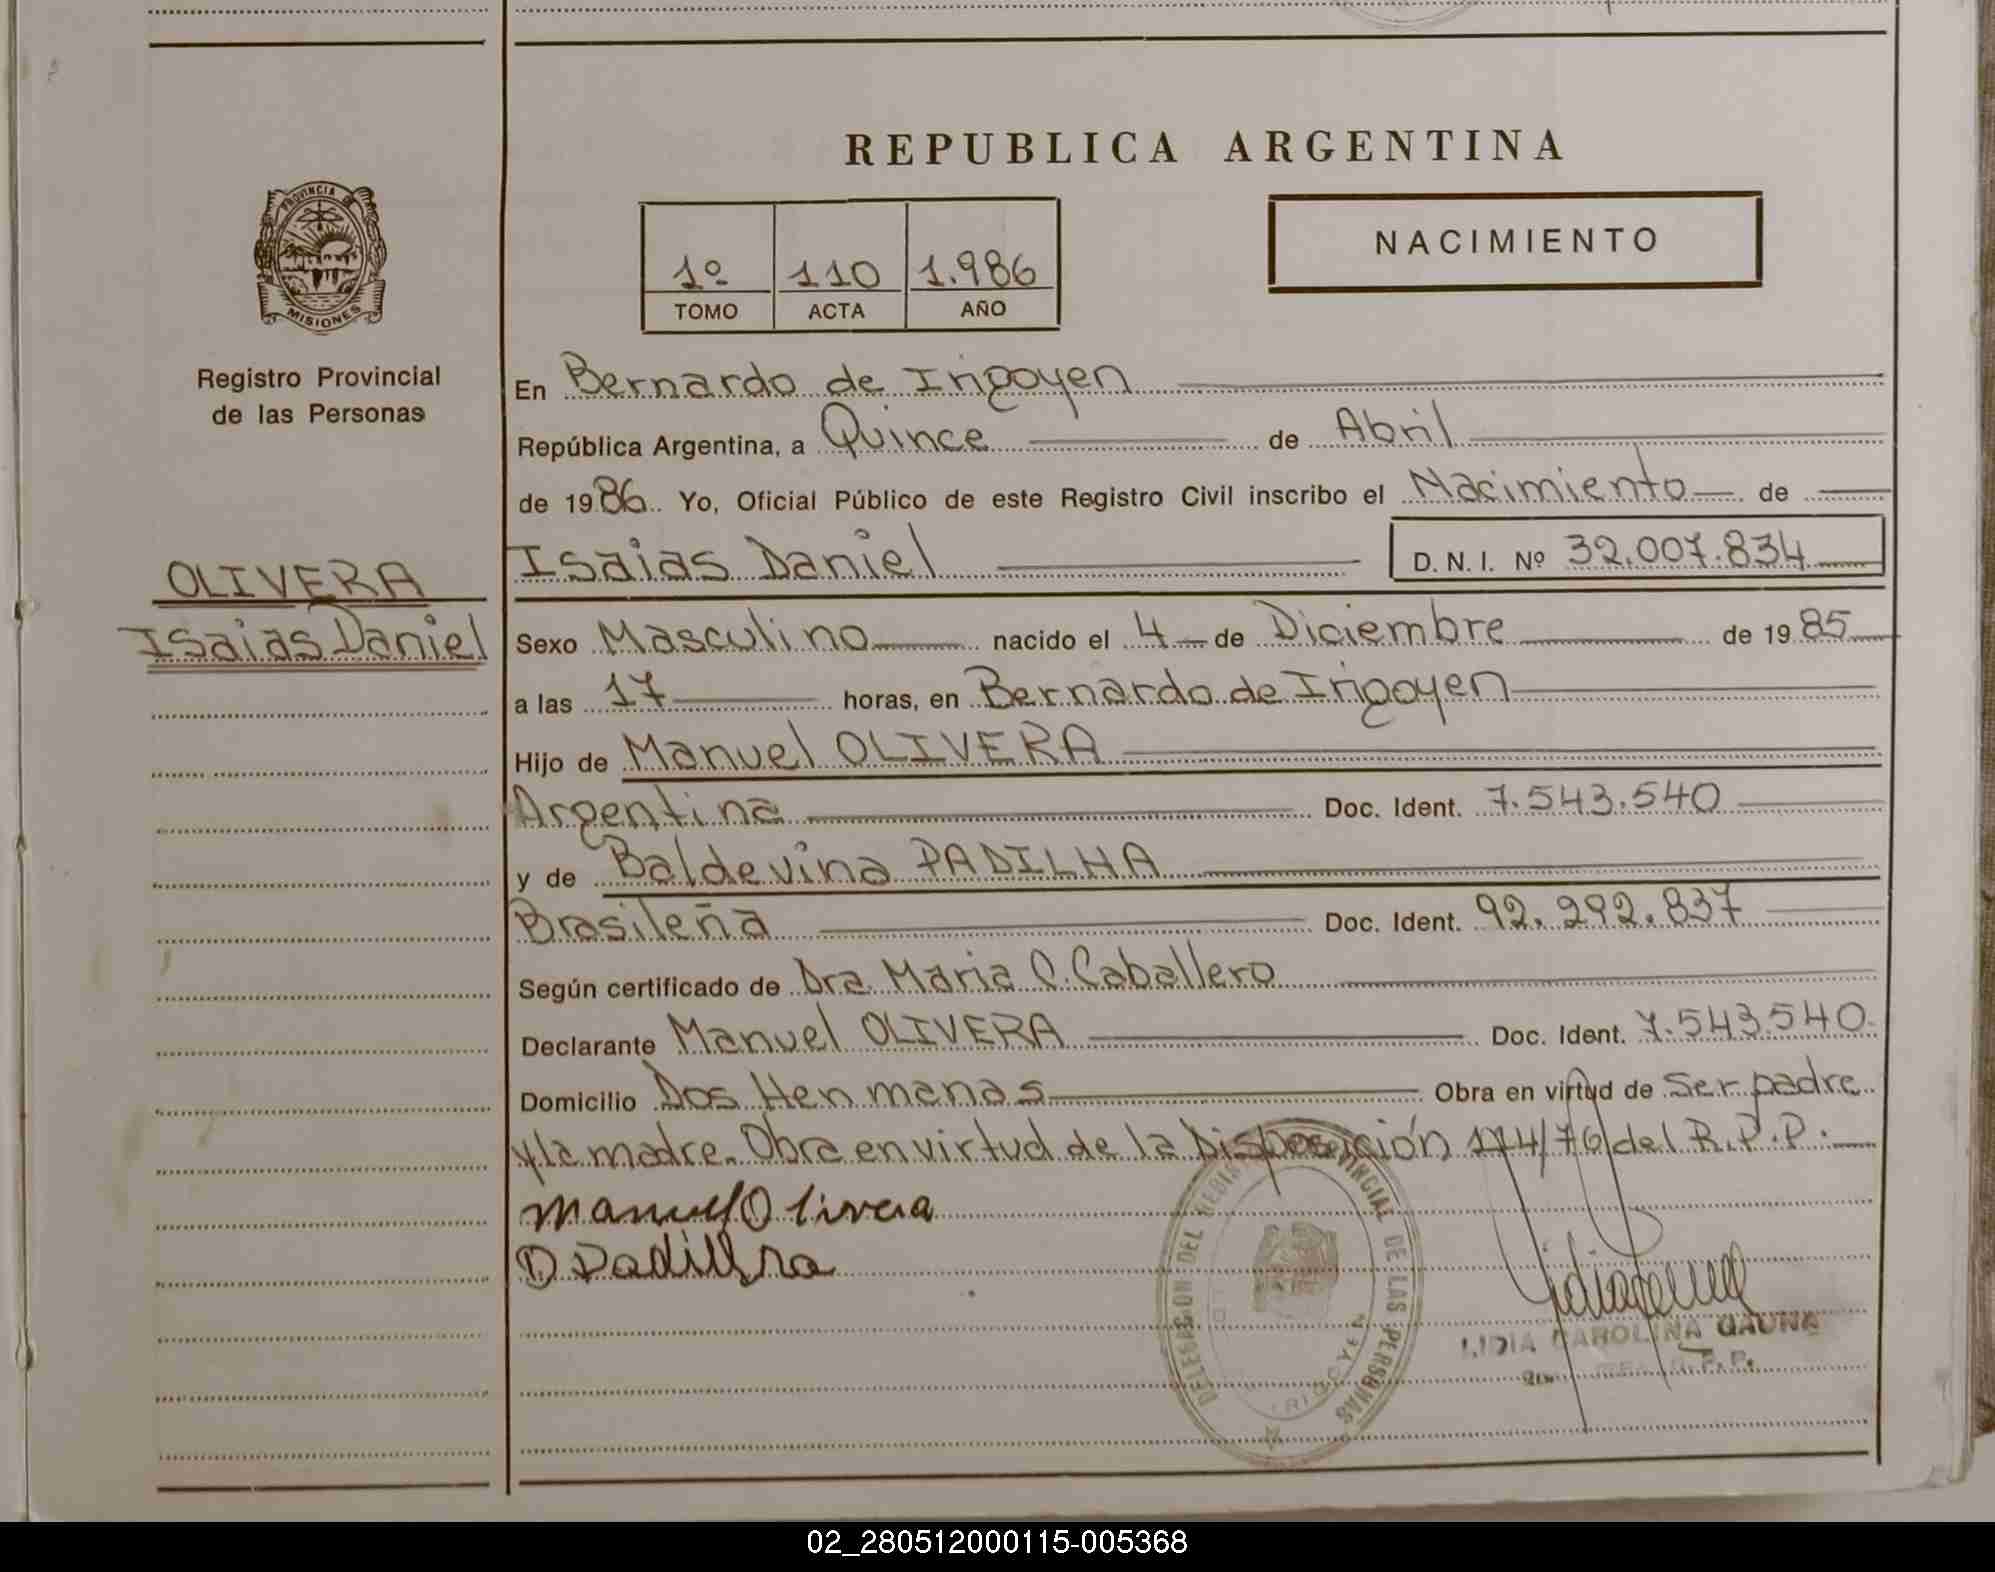 REPUBLICA ARGENTINA
PROVINCIA DE
MISIONES
Registro Provincial
de las Personas
NACIMIENTO
1º 110 1.986
TOMO ACTA AÑO
En Bernardo de Irigoyen
República Argentina, a Quince de Abril
de 1986. Yo, Oficial Público de este Registro Civil inscribo el Nacimiento de
Isaias Daniel D. N. I. Nº 32.007.834
OLIVERA
Isaias Daniel
Sexo Masculino nacido el 4 de Diciembre de 1985
a las 17 horas, en Bernardo de Irigoyen
Hijo de Manuel OLIVERA
Argentina Doc. Ident. 7.543.540
y de Baldevina PADILHA
Brasileña Doc. Ident. 92.292.837
Según certificado de Dra. Maria C. Caballero
Declarante Manuel OLIVERA Doc. Ident. 7.543.540
Domicilio Dos Hermanas Obra en virtud de Ser padre
y la madre. Obra en virtud de la Disposición 174/76 del R.P.P.
Manuel Olivera
Padilha
DELEGACION DEL PROVINCIAL DE LAS PERSONAS
IRIGOYEN
LIDIA CAROLINA GAUNA
R.P.P.
02_280512000115-005368